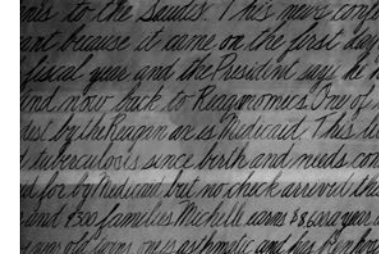 to the Saudis. This news conf
ant because it came on the first day
fiscal year and the President says he
and now back to Reaganomics. One of
by the Reagan is Medicaid. This
tuberculosis since birth and needs con
d for by Medicaid but no check arrived the
and 4300 families. Michelle earns $8,600 a year
years old twins one is asthmatic and has